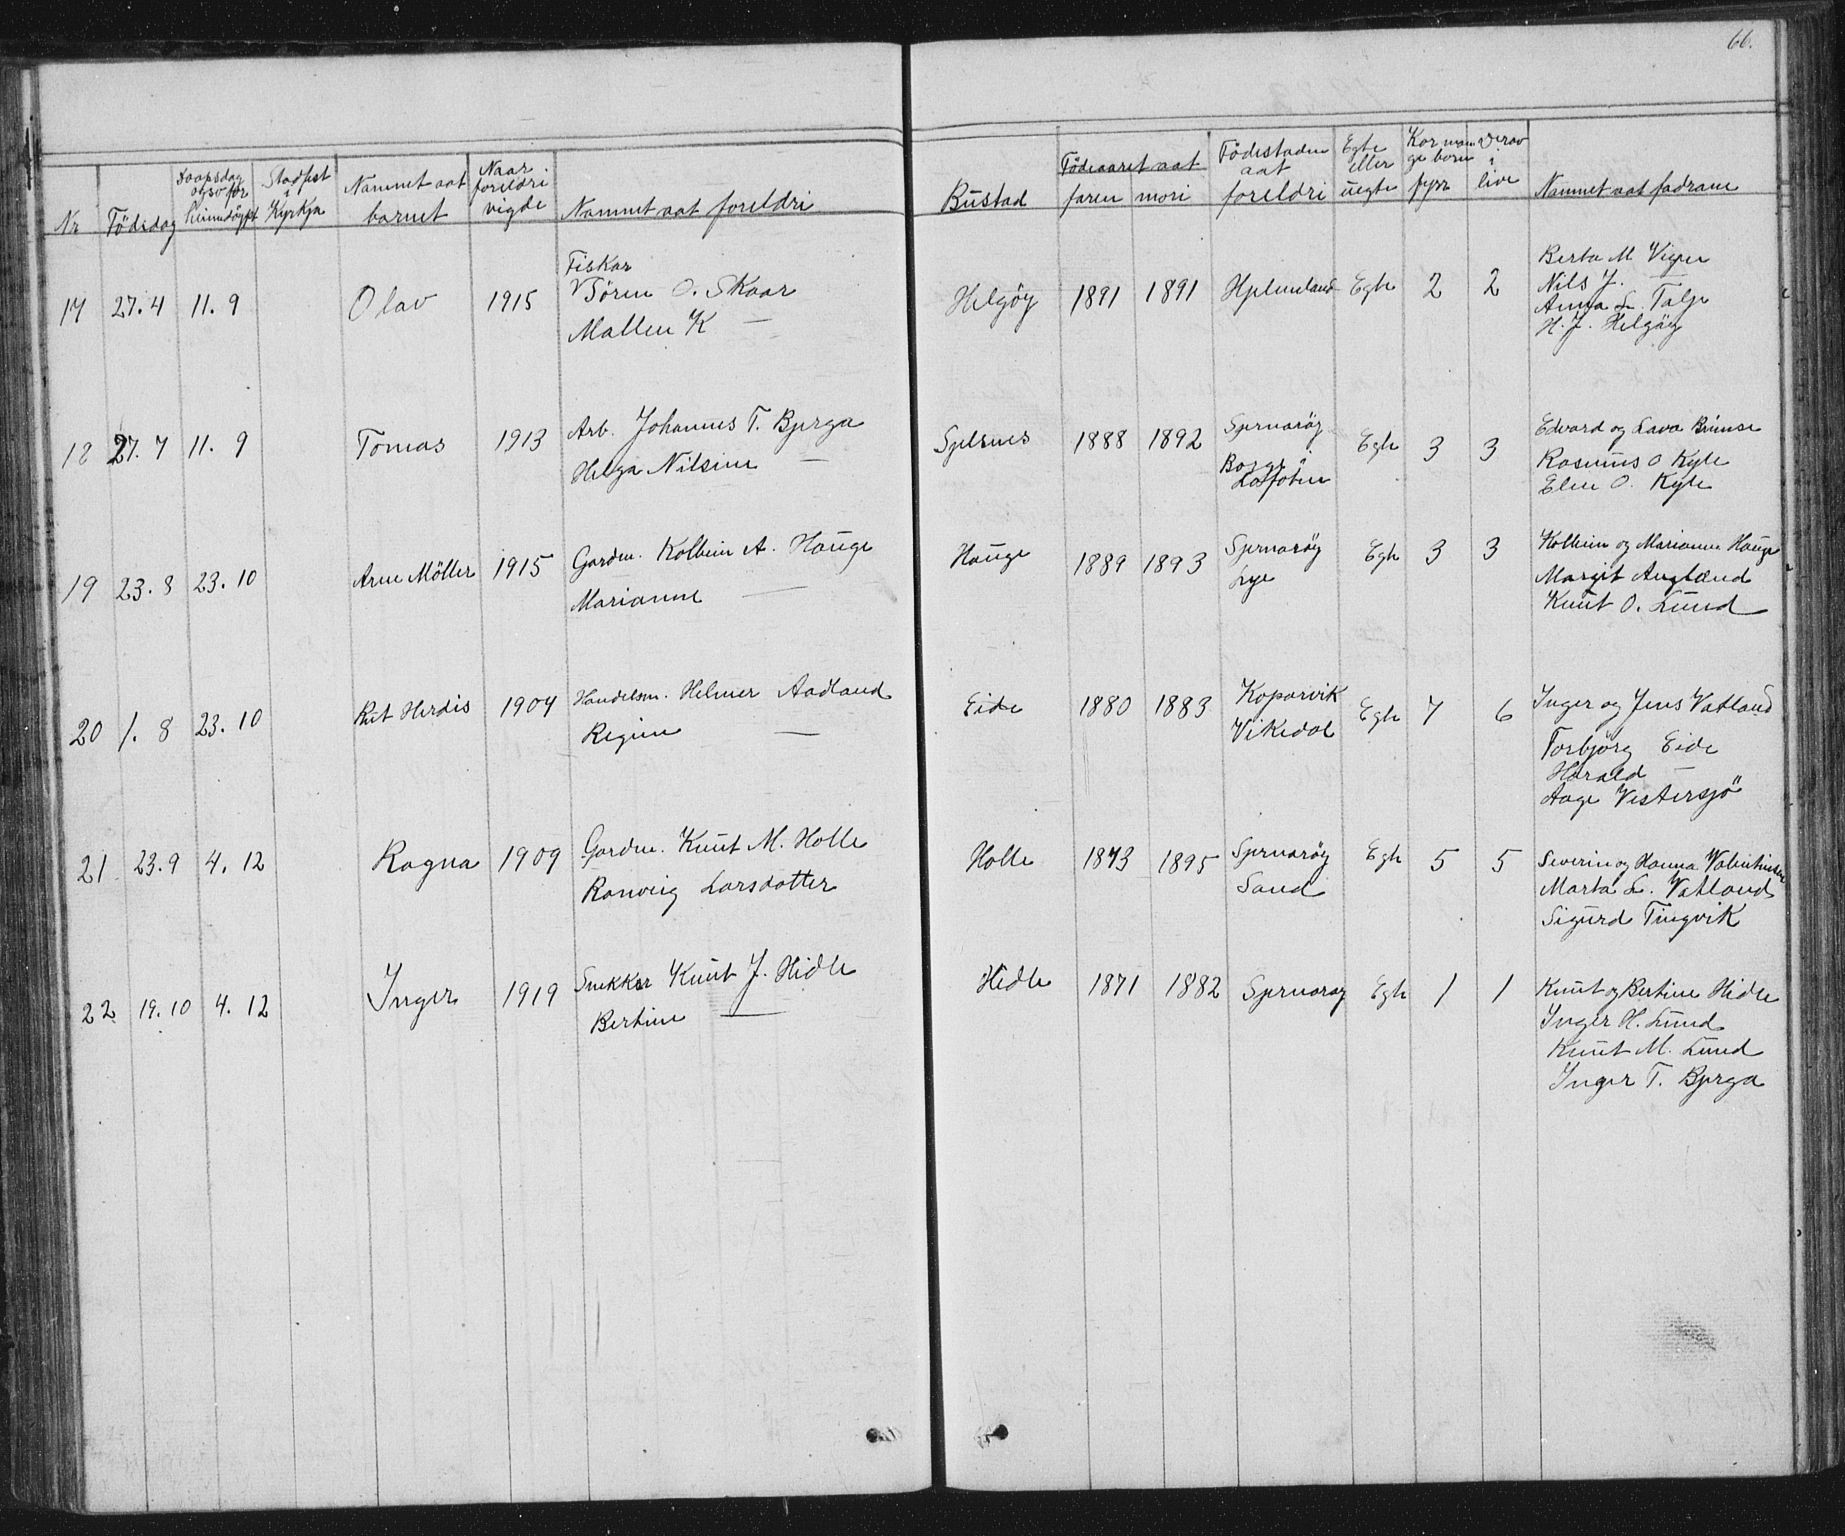 66.
Nr
Födsdag
Daapsdag
ogso for
heimedöypt
Stadfest
i
Kyrkja
Namnet aat
barnet
Naar
foreldri
vigde
Namnet aat foreldri
Bustad
Födeaaret aat
faren mori
Födestaden
aat
foreldri
Egte
eller
uegte
Kor man
ge born
fyrr
Derav
i
live
Namnet aat fadrane
17 27.4 11.9 Olav 1915
Fiskar
Sören O. Skaar
Mallen K —
Helgöy 1891 1891 Hjelmeland Egte 2 2
Berta M
Nils J. —
Anna L. Talje
H. J. Helgöy
18 27.7 11.9 Tomas 1913
Arb. Johannes T. Bjerga
Helga Nilsine —
Sjelsnes 1888 1892
Sjernaröy
Borge i
Lofoten
Egte 3 3
Edvard og Lava Brimse
Rasmus O Kyle
Elen O. Kyle
19 23.8 23.10 Arne Möller 1915
Gardm. Kolbein A. Hauge
Marianne —
Hauge 1889 1893
Sjernaröy
Lye
Egte 3 3
Kolbein og Marianne Hauge
Margit Augland
Knut O. Lund
20 1.8 23.10 Rut Herdis 1904
Handelsm. Helmer Aadland
Regine —
Eide 1880 1883
Koparvik
Vikedal
Egte 7 6
Inger og Jens Vatland
Torbjörg Eide
Harald —
Aage Vestersjö
21 23.9 4.12 Ragna 1909
Gardm. Knut M. Halle
Ranveig Larsdotter
Halle 1873 1895
Sjernaröy
Sand
Egte 5 5
Severin og Hanna Valentinsen
Marta L. Vatland
Sigurd Tingvik
22 19.10 4.12 Inger 1919
Snekker Knut J. Hidle
Bertine —
Hidle 1871 1882 Sjernaroy Egte 1 1
Knut og Bertine Hidle
Inger H. Lund
Knut M. Lund
Inger T. Bjerga